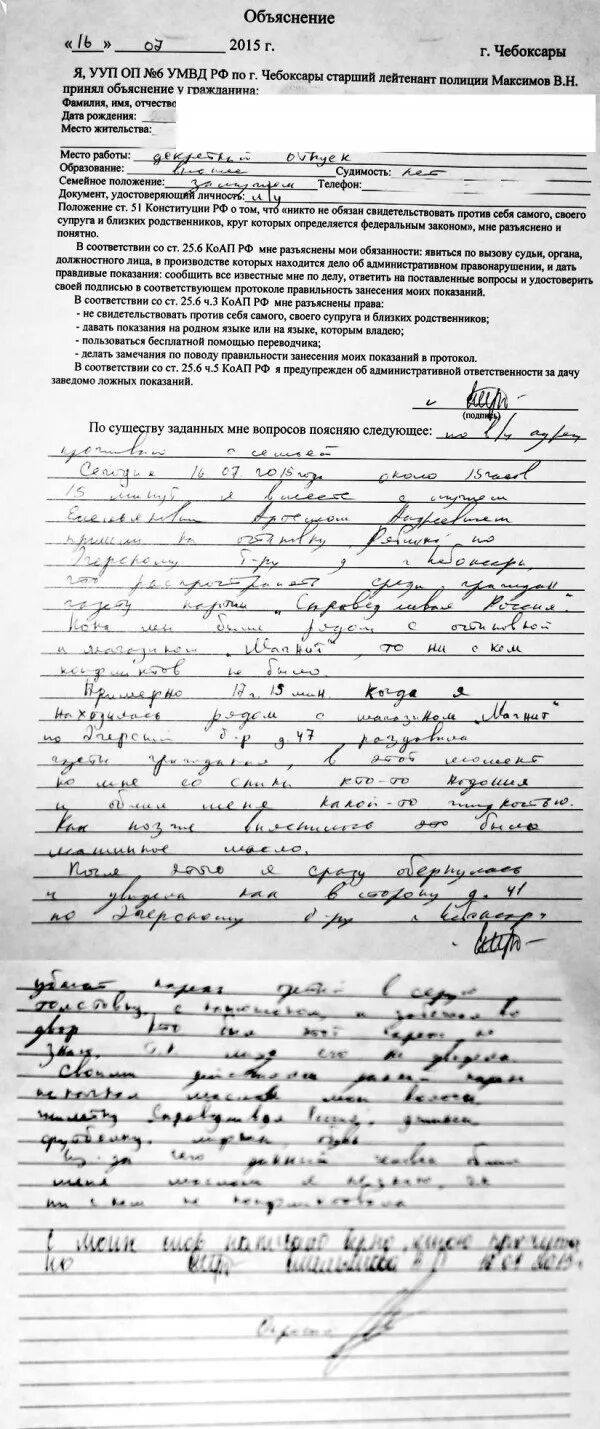 Объяснение
«16» 07 2015 г. г. Чебоксары
Я, УУП ОП №6 УМВД РФ по г. Чебоксары старший лейтенант полиции Максимов В.Н.
принял объяснение у гражданина:
Фамилия, имя, отчество
Дата рождения:
Место жительства:
Место работы: декретный отпуск
Образование: высшее Судимость: нет
Семейное положение: замужем Телефон:
Документ, удостоверяющий личность: л/у
Положение ст. 51 Конституции РФ о том, что «никто не обязан свидетельствовать против себя самого, своего
супруга и близких родственников, круг которых определяется федеральным законом», мне разъяснено и
понятно.
В соответствии со ст. 25.6 КоАП РФ мне разъяснены мои обязанности: явиться по вызову судьи, органа,
должностного лица, в производстве которых находится дело об административном правонарушении, и дать
правдивые показания: сообщить все известные мне по делу, ответить на поставленные вопросы и удостоверить
своей подписью в соответствующем протоколе правильность занесения моих показаний.
В соответствии со ст. 25.6 ч.3 КоАП РФ мне разъяснены права:
- не свидетельствовать против себя самого, своего супруга и близких родственников;
- давать показания на родном языке или на языке, которым владею;
- пользоваться бесплатной помощью переводчика;
- делать замечания по поводу правильности занесения моих показаний в протокол.
В соответствии со ст. 25.6 ч.5 КоАП РФ я предупрежден об административной ответственности за дачу
заведомо ложных показаний.
(подпись)
По существу заданных мне вопросов поясняю следующее: по в/у адресу
проживаю с семьей
Сегодня 16.07.2015 года около 15 часов
15 минут я вместе с мужем
Артемом Андреевичем
пришли на остановку по
Эгерскому б-ру г. Чебоксары,
распространять среди граждан
газету партии „Справедливая Россия".
Пока мы были рядом с остановкой
и магазином „Магнит", то ни с кем
конфликтов не было.
Примерно 17 ч. 15 мин. когда я
находилась рядом с магазином „Магнит"
по Эгерский б-р д. 47 раздавала
газеты гражданам, в этот момент
ко мне со спины кто-то подошел
и облил меня какой-то жидкостью.
Как позже выяснилось это было
машинное масло.
После этого я сразу обернулась
и увидела как в сторону д. 41
по Эгерскому б-ру г. Чебоксары
убегает парень в серую
толстовку с капюшоном, и забежал во
двор. Кто был этот парень не
знаю, т.к. лицо его не увидела.
Своими действиями данный парень
испачкал маслом мои волосы
жилетку Справедливая
футболку, обувь
Из-за чего данный человек облил
меня маслом я не знаю, т.к.
ни с кем не конфликтовала
С моих слов написано верно, мною прочитано